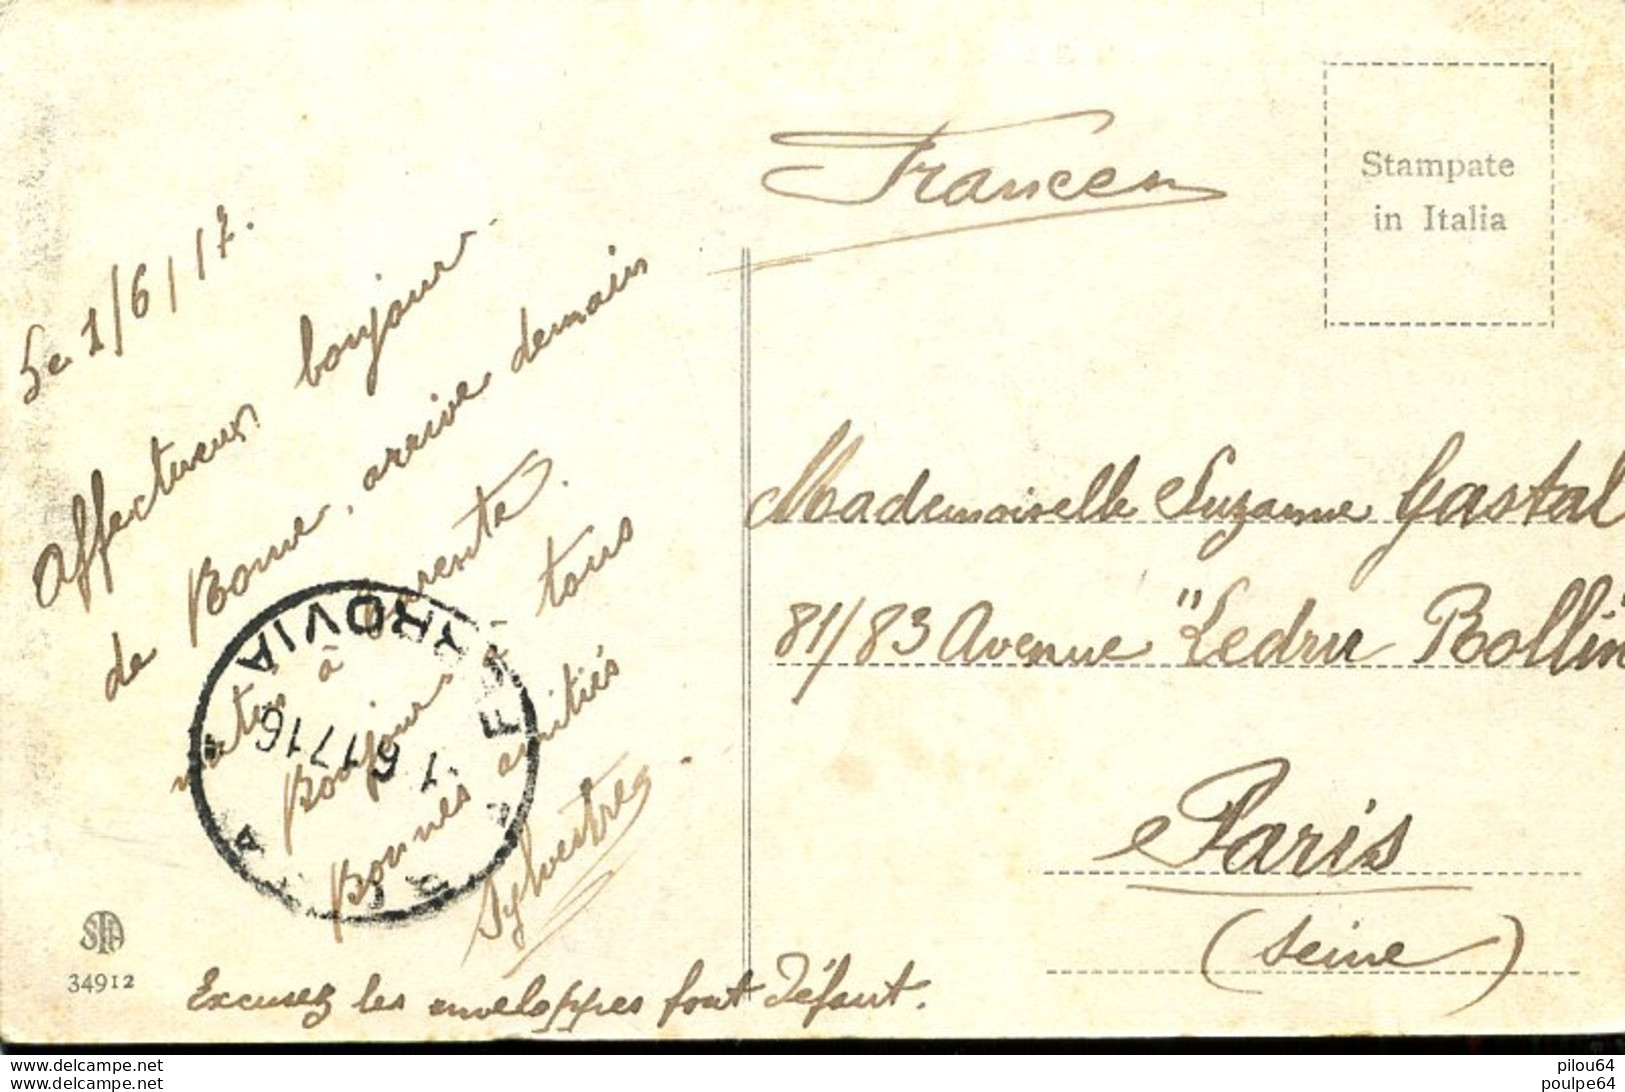 Le 1/6/17.
Affectueux bonjour
de Rome, arrive demain
matin à Tarente.
Bonjour à tous
Bonnes amitiés
Sylvestre
Excusez les enveloppes font défaut.
France
Stampate
in Italia
Mademoiselle Suzanne Gastal
81/83 Avenue "Ledru Rollin
Paris
(Seine)
FERROVIA
1 6 17 16
STA
34912
pilou64
poulpe64